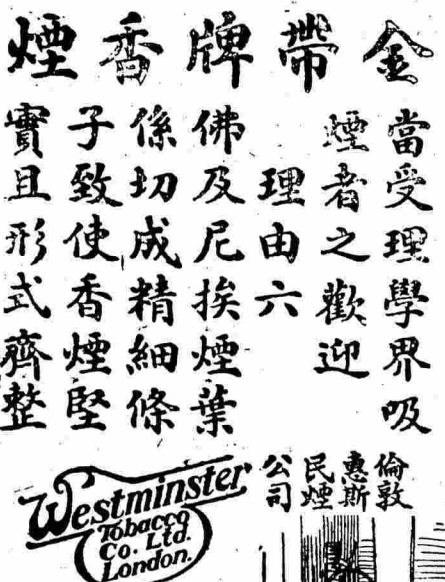 金帶牌香煙
當受理學界吸
煙者之歡迎
理由六
佛及尼挨煙葉
係切成精細條
子致使香煙堅
實且形式齊整
倫敦
惠斯
民煙
公司
Westminster
Tobacco
Co. Ltd.
London.